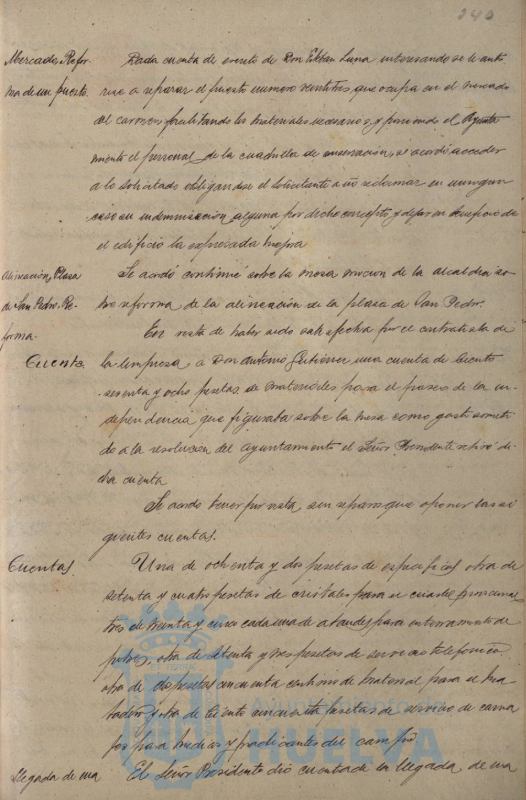 240
Mercado, Refor-
ma de un puesto.
Dada cuenta de escrito de Don Esteban Luna interesando se le auto-
rice a reparar el puesto numero veintitres, que ocupa en el mercado
del carmen facilitando los materiales necesarios, y poniendo el Ayunta
miento el personal de la cuadrilla de conservación, se acordó acceder
a lo solicitado obligandose el solicitante a no reclamar en ningun
caso indemnización alguna por dicho concepto, y dejar en beneficio de
el edificio la expresada mejora
Alineación, Plaza
de San Pedro, Re-
forma.
Se acordó continue sobre la mesa mocion de la alcaldia so-
bre reforma de la alineación de la plaza de San Pedro.
Cuenta.
En vista de haber sido satisfecha por el contratista de
la limpieza a Don Antonio Gutiérrez una cuenta de ciento
sesenta y ocho pesetas de materiales para el paseo de la in-
dependencia que figuraba sobre la mesa como gasto someti
do a la resolución del Ayuntamiento el Señor Presidente retiró di-
cha cuenta
Se acordo tener por vista, sin reparo que oponer las si-
guientes cuentas.
Cuentas.
Una de ochenta y dos pesetas de especificos, otra de
setenta y cuatro pesetas de cristales para el cuartel provisional
tres de treinta y cinco cada una de ataudes para enterramientos de
pobres, otra de setenta y tres pesetas de servicio telefonico
otra de dos pesetas cincuenta centimos de material para el ma-
tadero y otra de ciento cincuenta pesetas de servicio de carrua
jes para medicos y practicantes del campo
Llegada de una
El Señor Presidente dió cuenta de la llegada de una
HUELVA